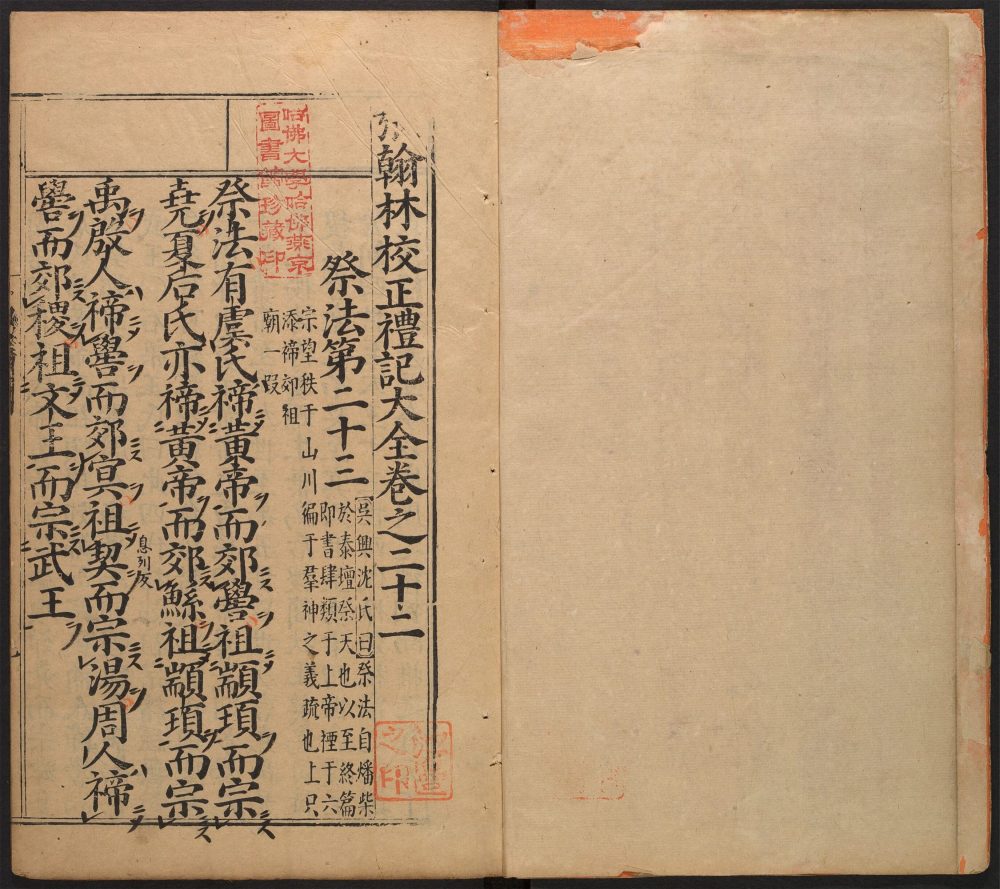 翰林校正禮記大全卷之二十二
祭法第二十三
【吳興沈氏曰】祭法自燔柴
於泰壇祭天也以至終篇
即書肆類于上帝禋于六
宗望秩于山川徧于羣神之義疏也上只
添禘郊祖
廟一段
祭法有虞氏禘黃帝而郊嚳祖顓頊而宗
堯夏后氏亦禘黃帝而郊鯀祖顓頊而宗
禹殷人禘嚳而郊冥祖契而宗湯周人禘
息列反
嚳而郊稷祖文王而宗武王
哈佛大學哈佛燕京
圖書館珍藏印
之印